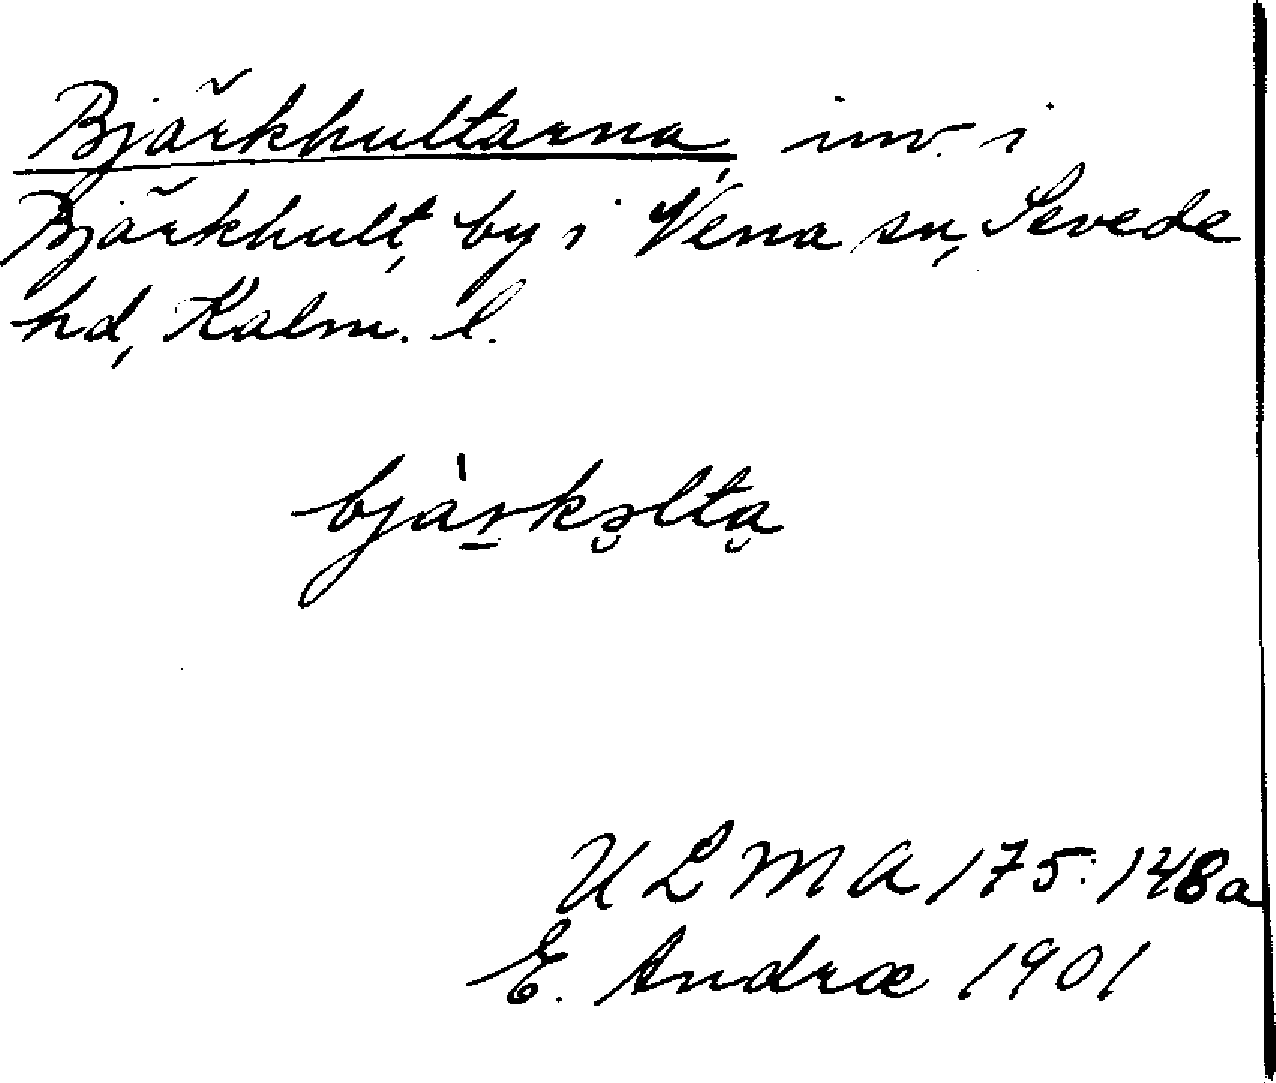 Bjärkhultarna, inv. i
Bjärkhult, by i Vena sn, Sevede
hd, Kalm. l.
bjàr̠kə̮lta̮
ULMA 175:148a
E. Andræ 1901